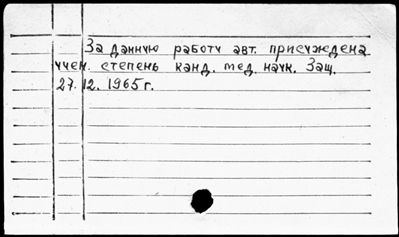 За данную работу авт. присуждена
учен. степень канд. мед. наук. Защ.
27.12.1965г.